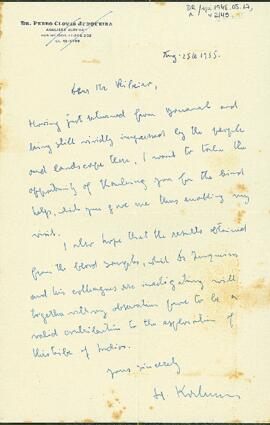 DR. PEDRO CLOVIS JUNQUEIRA
Aug. 25th 1955.
Dear Mr Ribeiro,
Having just returned from and
being still vividly impressed by the people
and landscape there, I want to take the
opportunity of thanking you for the kind
help, which you gave me thus enabling my
visit.
I also hope that the results obtained
from the blood samples, which Dr Junqueira
and his colleagues are investigating will
together with my observations prove to be a
valid contribution to the exploration of
this tribe of Indios.
Yours sincerely
H.